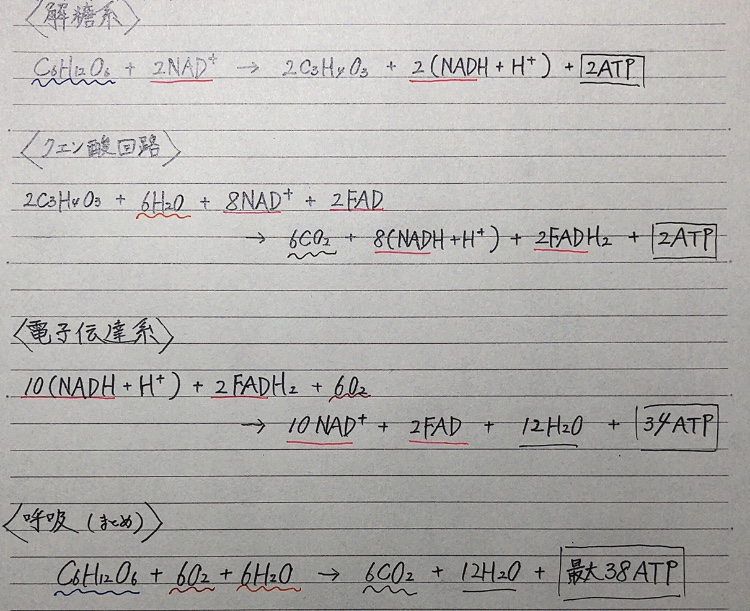 〈解糖系〉
C6H12O6 + 2NAD⁺ → 2C3H4O3 + 2(NADH + H⁺) + 2ATP
〈クエン酸回路〉
2C3H4O3 + 6H2O + 8NAD⁺ + 2FAD
→ 6CO2 + 8(NADH+H⁺) + 2FADH2 + 2ATP
〈電子伝達系〉
10(NADH + H⁺) + 2FADH2 + 6O2
→ 10NAD⁺ + 2FAD + 12H2O + 34ATP
〈呼吸(まとめ)〉
C6H12O6 + 6O2 + 6H2O → 6CO2 + 12H2O + 最大38ATP